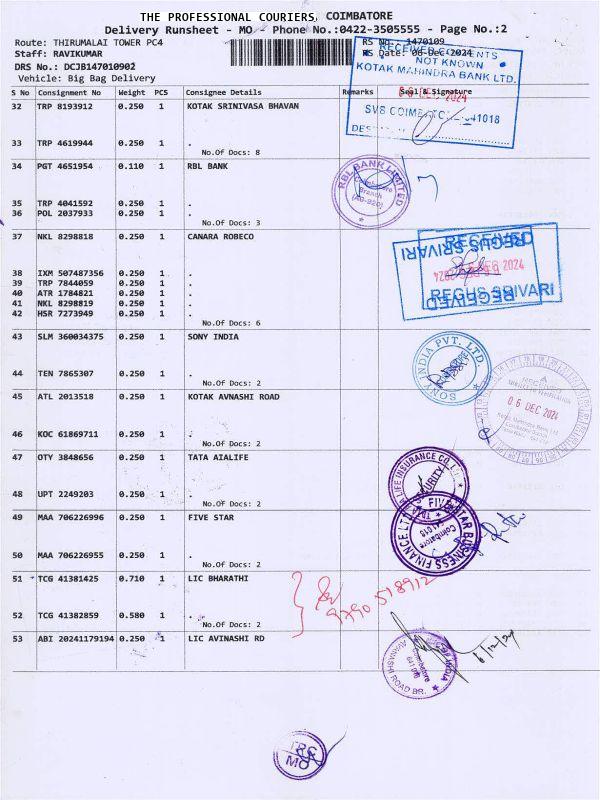 THE PROFESSIONAL COURIERS, COIMBATORE
Delivery Runsheet - MO - Phone No.:0422-3505555 - Page No.:2
Route: THIRUMALAI TOWER PC4
RS No.: 1470109
Staff: RAVIKUMAR
RS Date: 06-Dec-2024
DRS No.: DCJB147010902
Vehicle: Big Bag Delivery
RECEIVED CONTENTS
NOT KNOWN
KOTAK MAHINDRA BANK LTD.
DEC 2024
S No Consignment No Weight PCS Consignee Details Remarks Seal & Signature
32 TRP 8193912 0.250 1 KOTAK SRINIVASA BHAVAN
33 TRP 4619944 0.250 1 .
No.Of Docs: 8
34 PGT 4651954 0.110 1 RBL BANK
RBL BANK LIMITED
Coimbatore
Branch
35 TRP 4041592 0.250 1 .
36 POL 2037933 0.250 1 .
No.Of Docs: 3
37 NKL 8298818 0.250 1 CANARA ROBECO
RECEIVED
REGUS SRIVARI
38 IXM 507487356 0.250 1 .
39 TRP 7844059 0.250 1 .
40 ATR 1784821 0.250 1 .
41 NKL 8298819 0.250 1 .
42 HSR 7273949 0.250 1 .
No.Of Docs: 6
43 SLM 360034375 0.250 1 SONY INDIA
SONY INDIA PVT. LTD.
44 TEN 7865307 0.250 1 .
No.Of Docs: 2
45 ATL 2013518 0.250 1 KOTAK AVNASHI ROAD
06 DEC 2024
46 KOC 61869711 0.250 1 .
No.Of Docs: 2
47 OTY 3848656 0.250 1 TATA AIALIFE
LIFE INSURANCE CO. LTD.
SECURITY
48 UPT 2249203 0.250 1 .
No.Of Docs: 2
49 MAA 706226996 0.250 1 FIVE STAR
FIVE STAR BUSINESS FINANCE LTD
Coimbatore
50 MAA 706226955 0.250 1 .
No.Of Docs: 2
51 TCG 41381425 0.710 1 LIC BHARATHI
9790518912
52 TCG 41382859 0.580 1 .
No.Of Docs: 2
53 ABI 20241179194 0.250 1 LIC AVINASHI RD
6/12/24
Coimbatore
AVINASHI ROAD BR.
MO